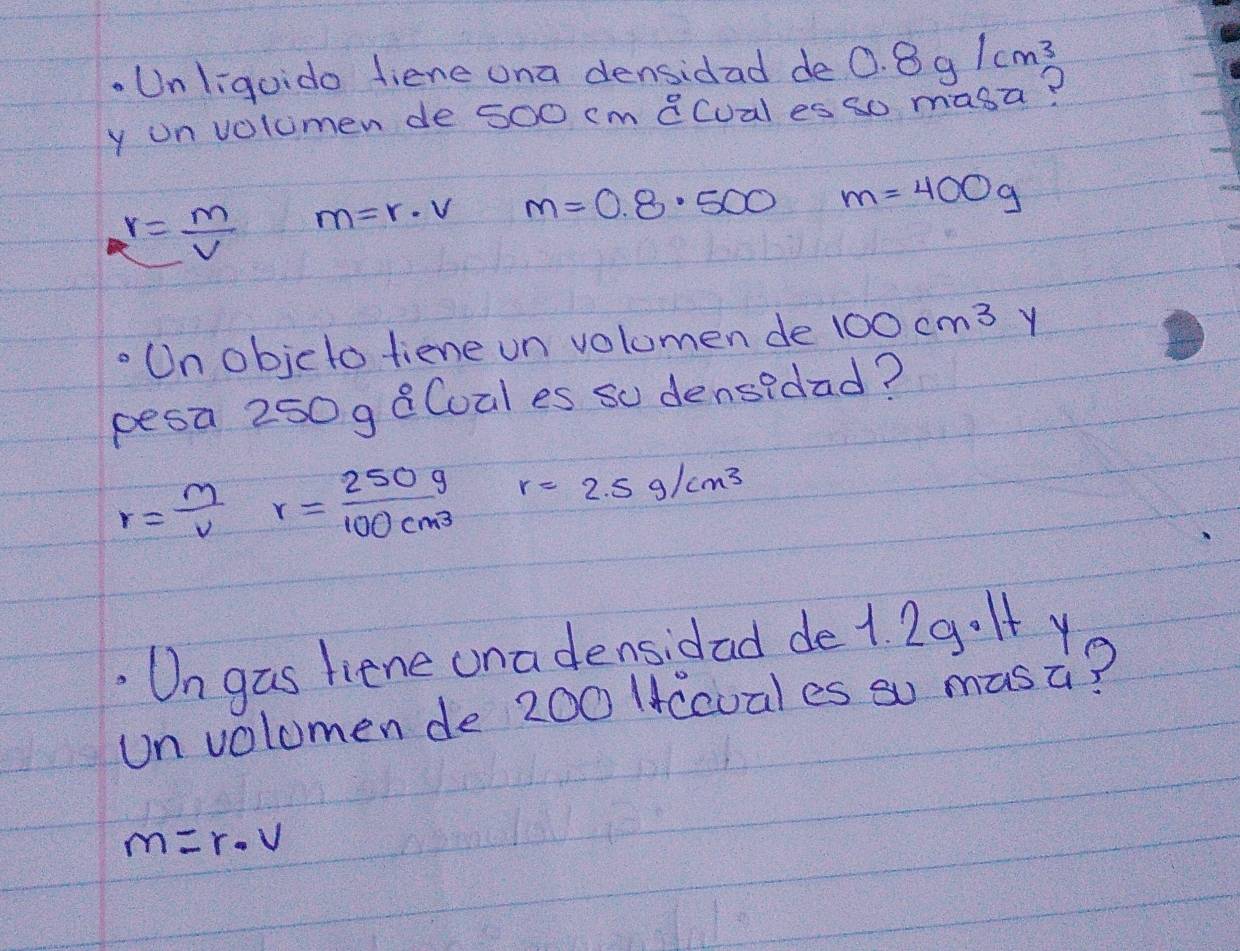 • Un liquido tiene una densidad de 0.8 g /cm³
y un volumen de 500 cm ¿Cual es su masa?
r = m/v m=r.v m=0.8•500 m=400g
• Un objeto tiene un volumen de 100 cm³ y
pesa 250g ¿Cual es su densidad?
r = m/v r = 250 g/100 cm³ r = 2.5 g/cm³
• Un gas tiene una densidad de 1.2g•lt y
un volumen de 200 lt ¿cual es su masa?
m=r.v